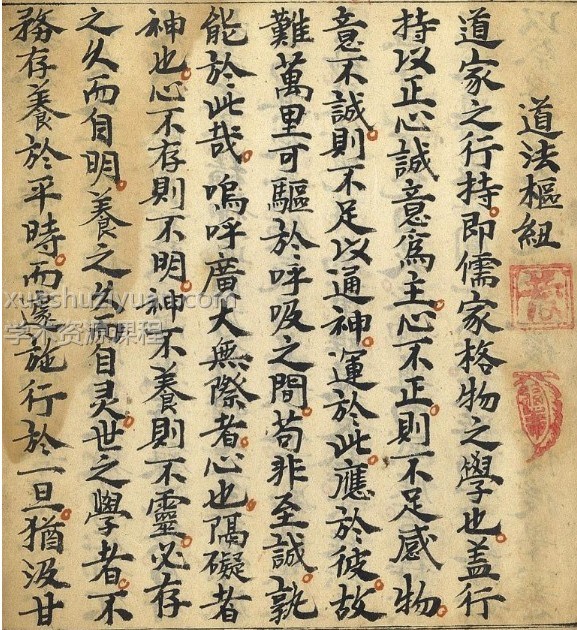 道法樞紐
道家之行持即儒家格物之學也盖行
持以正心誠意爲主心不正則不足感物
意不誠則不足以通神運於此應於彼故
難萬里可驅於呼吸之間苟非至誠孰
能於此哉嗚呼廣大無際者心也隔礙者
神也心不存則不明神不養則不靈必存
之久而自明養之久而自灵世之學者不
務存養於平時而遽施行於一旦猶汲甘
xueshuziyuan.com
学术资源课程